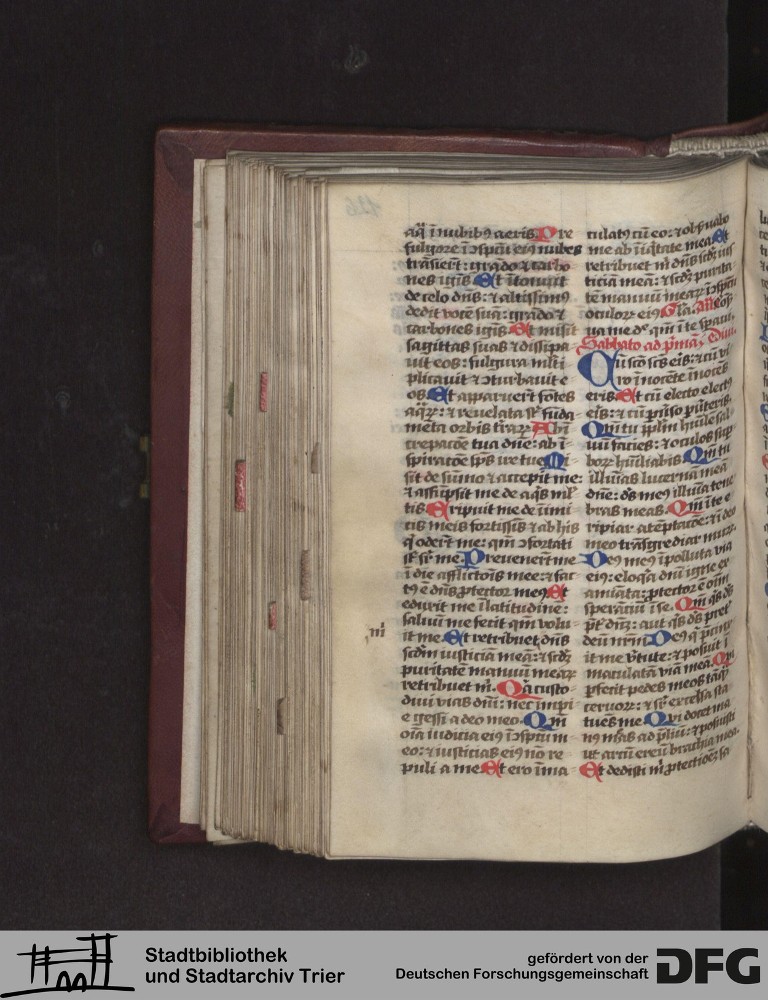 aq̄ ī nubibꝰ aeris. Pre
fulgore ī ↄspcū eiꝰ nubes
trāsierūt: grādo ⁊ carbo
nes ignis. Et ītonuit
de celo dn̄s: ⁊ altissimꝰ
dedit vocē suā: grādo ⁊
carbones ignis. Et misit
sagittas suas ⁊ dissipa
uit eos: fulgura ml̄ti
plicauit ⁊ ↄturbauit e
os. Et apparuerūt fōtes
aq̄ꝝ: ⁊ reuelata sūt fūda
mēta orbis trāꝝ. Ab ī
crepacōe tua dn̄e: ab ī
spiracōe sp̄s ire tue. Mi
sit de sūmo ⁊ accepit me:
⁊ assūpsit me de aq̄s ml̄
tis. Eripuit me de īimi
cis meis fortissīs ⁊ ab his
q̄ oderūt me: qm̄ ↄfortati
sūt sr̄ me. Preuenerūt me
ī die afflictōis mee: ⁊ fac
tꝰ ē dn̄s ꝓtector meꝰ. Et
eduxit me ī latitudine:
saluū me fecit qm̄ volu
it me. Et retribuet dn̄s
scdm̄ iusticiā meā: ⁊ scdꝫ
puritatē manuū meaꝝ
retribuet m̄. Qa custo
diui vias dn̄i: nec impi
e gessi a deo meo. Qm̄
oīa iudicia eiꝰ ī ↄspcū m
eo: ⁊ iusticias eiꝰ nō re
puli a me. Et ero īma
culatꝰ cū eo: ⁊ obẜuabo
me ab iīqͥtate mea. Et
retribuet m̄ dn̄s scdꝫ ius
ticiā meā: ⁊ scdꝫ purita
tē manuū meaꝝ ī ↄspcū
oculoꝝ eiꝰ. Gl̄a.
Sabbato ad pͥmā
Cū scō scs̄ eis: ⁊ cū vi
ro īnocēte īnocēs
eris. Et cū electo electꝰ
eis: ⁊ cū puso puteris.
Qm̄ tu pplm̄ hūilē sal
uū facies: ⁊ oculos suꝑ
boꝝ hūiliabis. Qm̄ tu
illuīas lucernā meā
dn̄e: ds̄ meꝰ illuīa tene
bras meas. Qm̄ ī te e
ripiar a tēptacōe: ⁊ ī deo
meo trāsgrediar muꝝ.
Deꝰ meꝰ īpolluta via
eiꝰ: eloqͥa dn̄i igne ex
amīata: ꝓtector ē oīm
speraciū ī se. Qm̄ qͥs ds̄
pͭ dn̄ꝫ: aut qͥs ds̄ pret
deū nrm̄. Deꝰ qͥ pcinx
it me v̄tute: ⁊ posuit ī
maculatā viā meā. Qui
pfecit pedes meos tāqͣ
ceruoꝝ: ⁊ sr̄ excelsa sta
tuēs me. Qui docet ma
nꝰ m̄as ad pliū: ⁊ posuisti
ut arcū ereū brachia mea.
Et dedisti m̄ ꝓtectioēꝫ sa
m̄
126
Stadtbibliothek
und Stadtarchiv Trier
gefördert von der
Deutschen Forschungsgemeinschaft
DFG